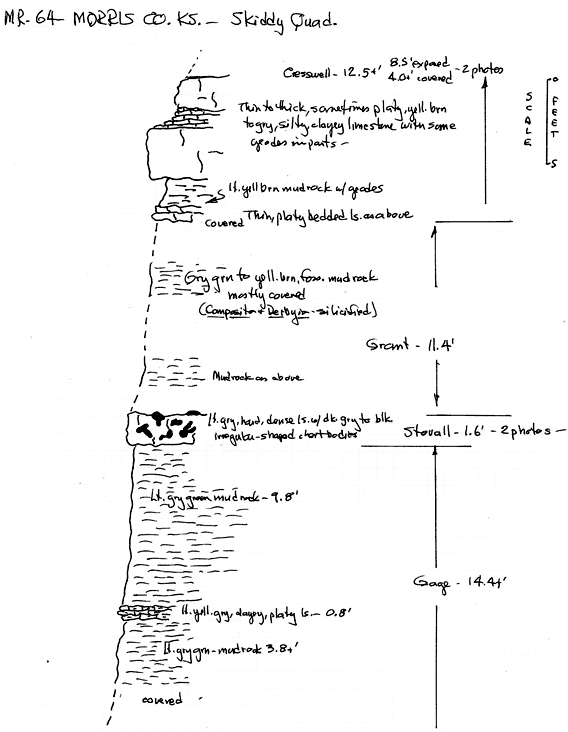 MR-64- MORRIS CO. KS. - Skiddy Quad.
Cresswell - 12.5+' 8.5' exposed 4.0+' covered - 2 photos
SCALE
0 FEET 5
Thin to thick, sometimes platy, yell. brn
to gry, silty, clayey limestone with some
geodes in parts -
lt. yell brn mudrock w/ geodes
covered Thin, platy bedded ls. as above
Gry grn to yell. brn, foss. mudrock
mostly covered
(Composita & Derbyia - silicified)
Grant - 11.4'
Mudrock as above
lt. gry, hard, dense ls. w/ dk gry to blk
irregular-shaped chert bodies
Stovall - 1.6' - 2 photos -
Lt. gry green mudrock - 9.8'
Gage - 14.4+'
lt. yell. gry, clayey, platy ls. - 0.8'
lt. gry grn - mudrock 3.8+'
covered